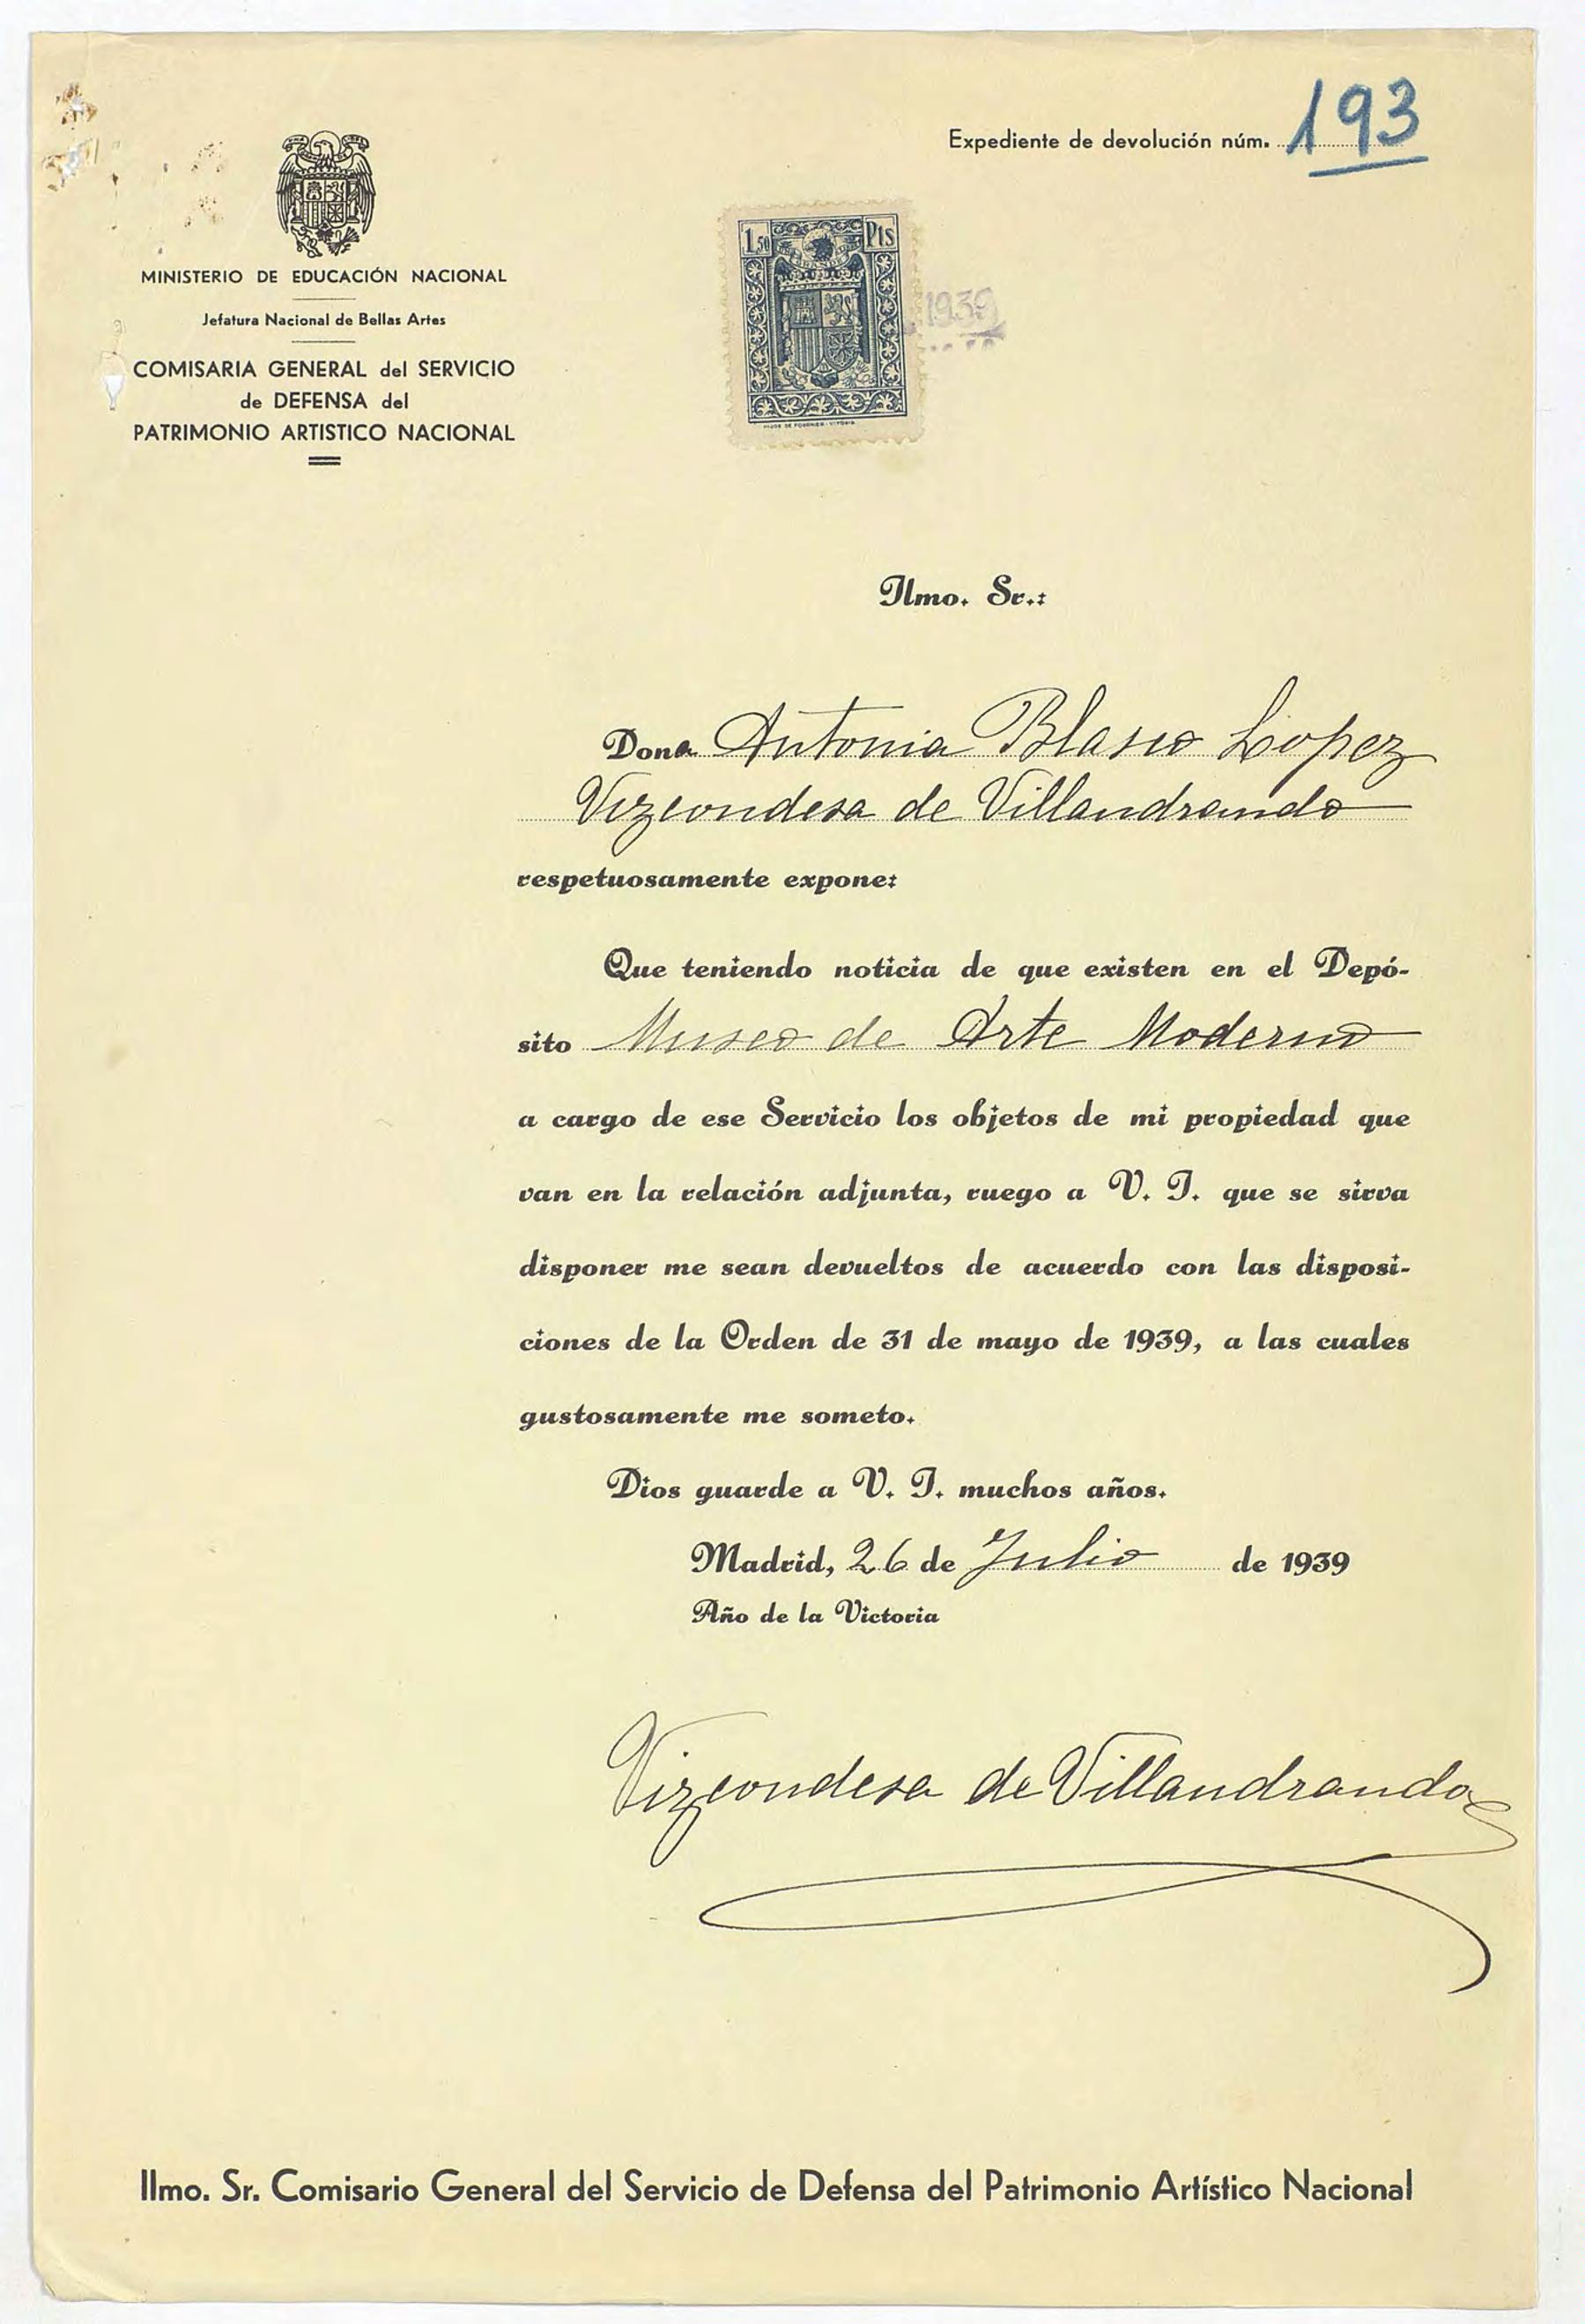 Expediente de devolución núm. 193
MINISTERIO DE EDUCACIÓN NACIONAL
Jefatura Nacional de Bellas Artes
COMISARIA GENERAL del SERVICIO
de DEFENSA del
PATRIMONIO ARTISTICO NACIONAL
1,50 Pts
1939
Ilmo. Sr.:
Dona Antonia Blasco Lopez
Vizcondesa de Villandrando
respetuosamente expone:
Que teniendo noticia de que existen en el Depó-
sito Museo de Arte Moderno
a cargo de ese Servicio los objetos de mi propiedad que
van en la relación adjunta, ruego a V. I. que se sirva
disponer me sean devueltos de acuerdo con las disposi-
ciones de la Orden de 31 de mayo de 1939, a las cuales
gustosamente me someto.
Dios guarde a V. I. muchos años.
Madrid, 26 de Julio de 1939
Año de la Victoria
Vizcondesa de Villandrando
Ilmo. Sr. Comisario General del Servicio de Defensa del Patrimonio Artístico Nacional